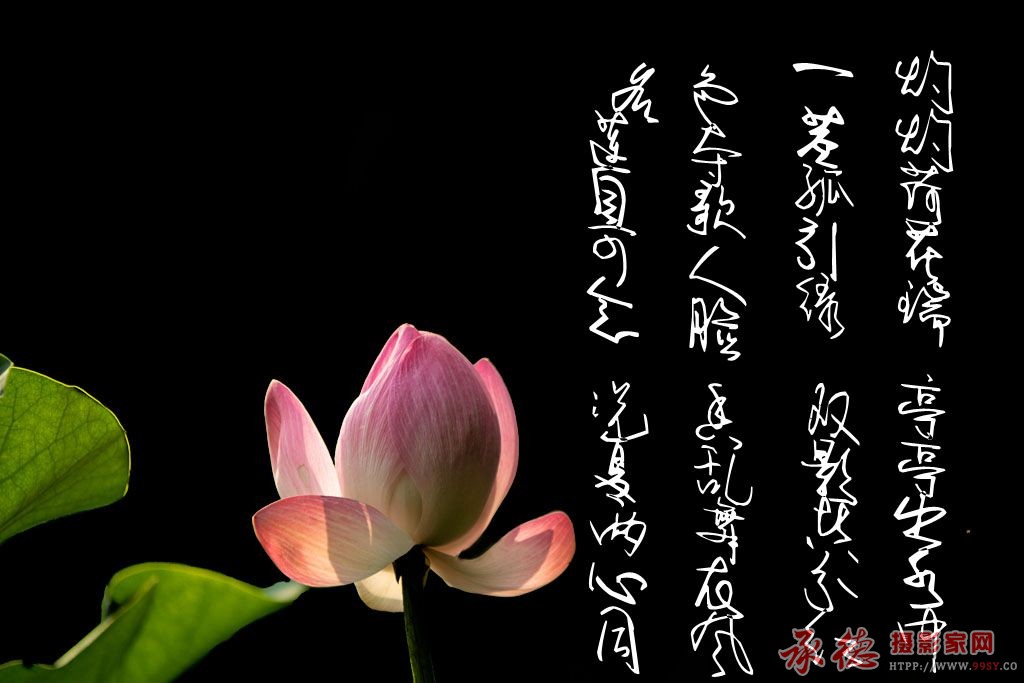 灼灼荷花瑞 亭亭出水中
一茎孤引绿 双影共分红
色夺歌人脸 香乱舞衣风
名莲自可念 况复两心同
承德 摄影家网
HTPP://WWW.99SY.CO